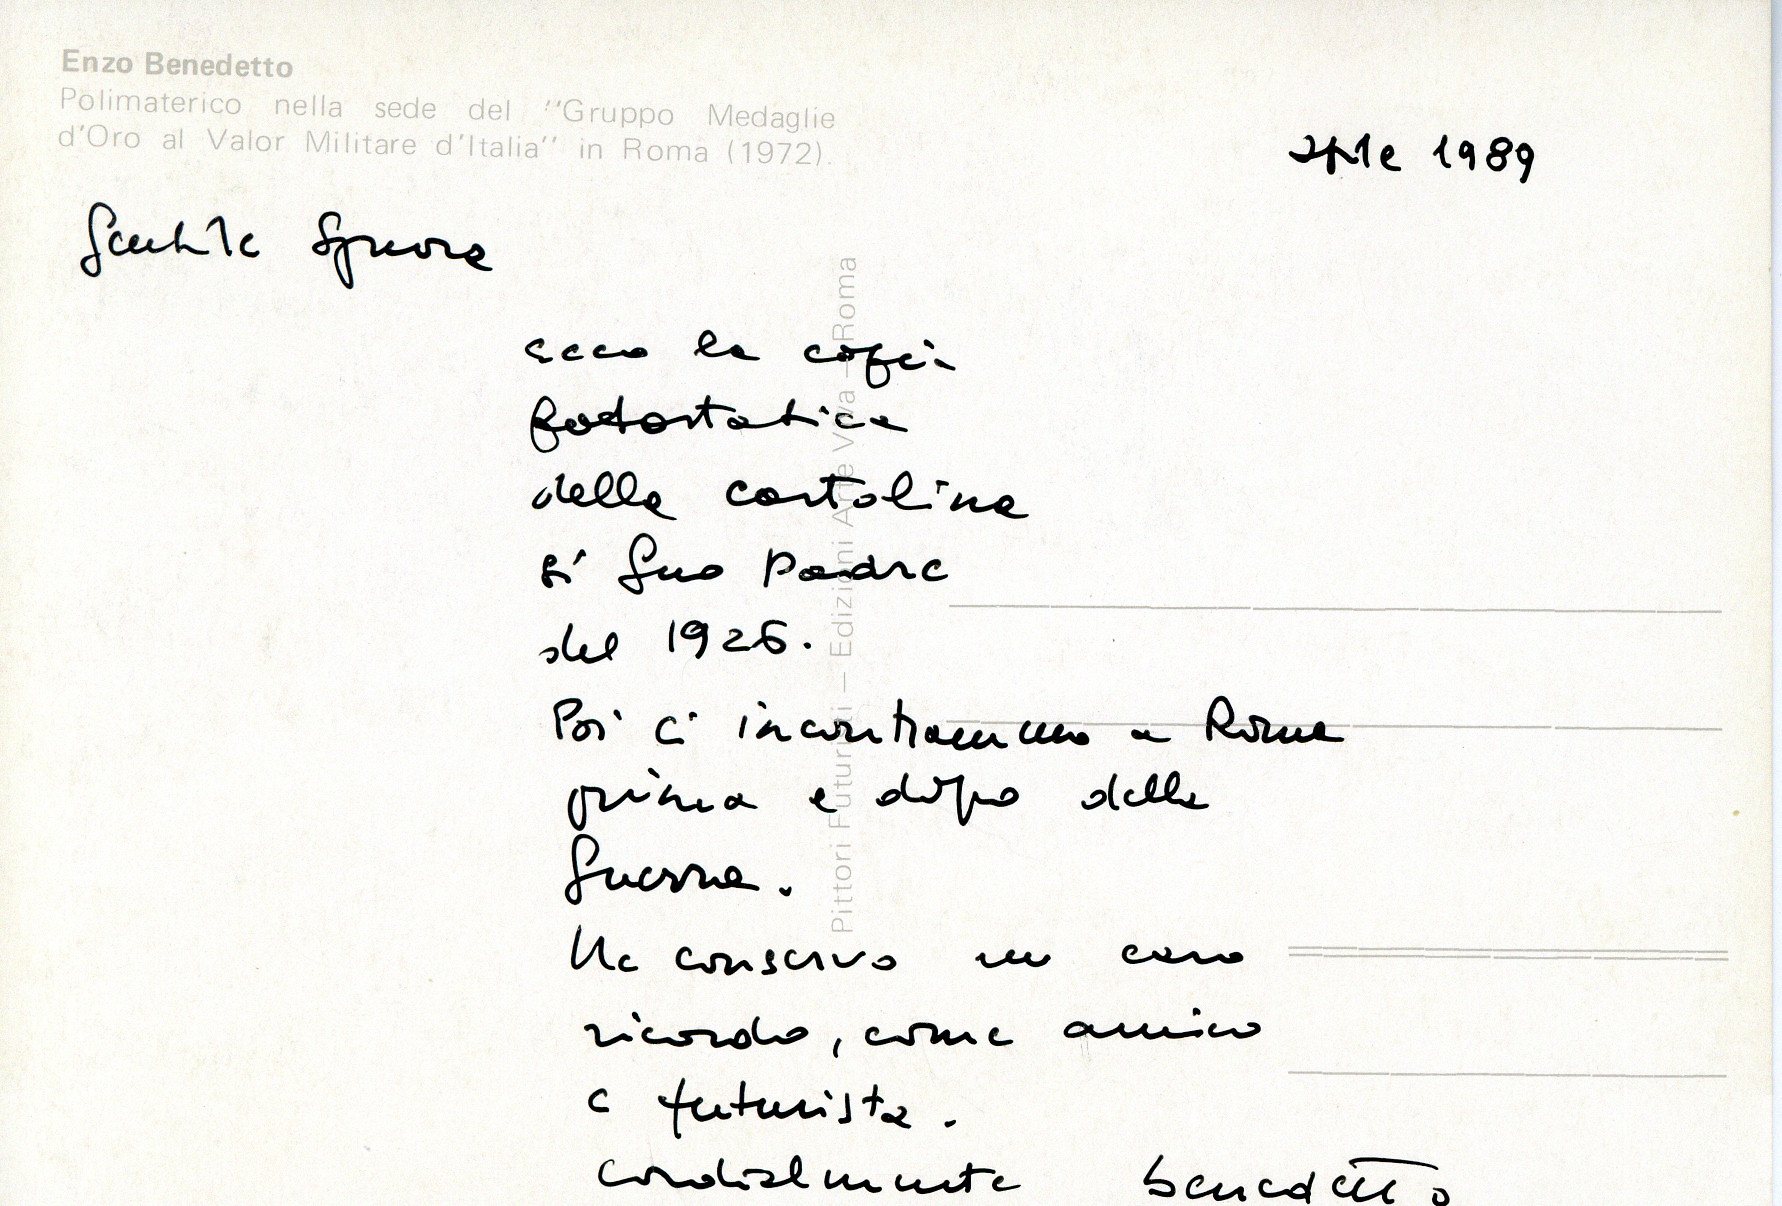 Enzo Benedetto
Polimaterico nella sede del ''Gruppo Medaglie
d'Oro al Valor Militare d'Italia'' in Roma (1972).
aprile 1989
Gentile Signora
ecco la copia
fotostatica
della cartolina
di Suo Padre
del 1926.
Poi ci incontrammo a Roma
prima e dopo della
Guerra.
Ne conservo un caro
ricordo, come amico
e futurista.
cordialmente benedetto
Pittori Futuristi — Edizioni Arte Viva — Roma